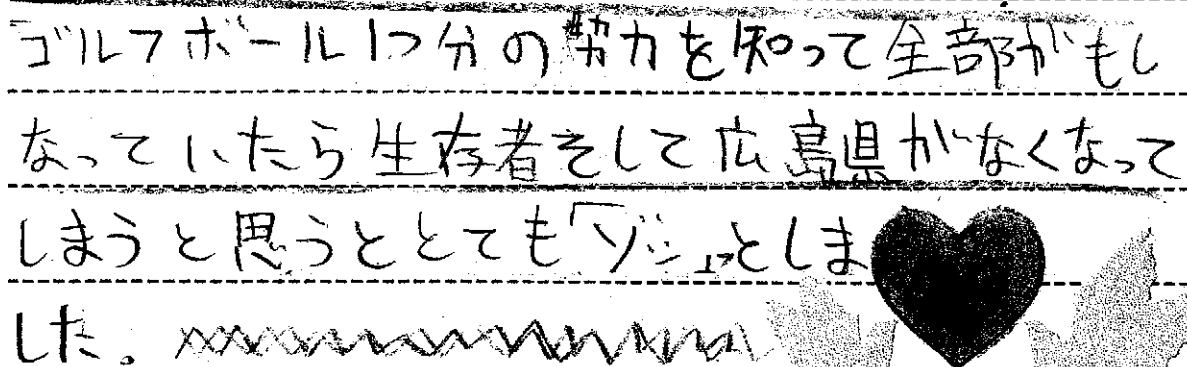 ゴルフボール1つ分の努力を知って全部がもし
なっていたら生存者そして広島県がなくなって
しまうと思うととても「ゾッ」としま
した。